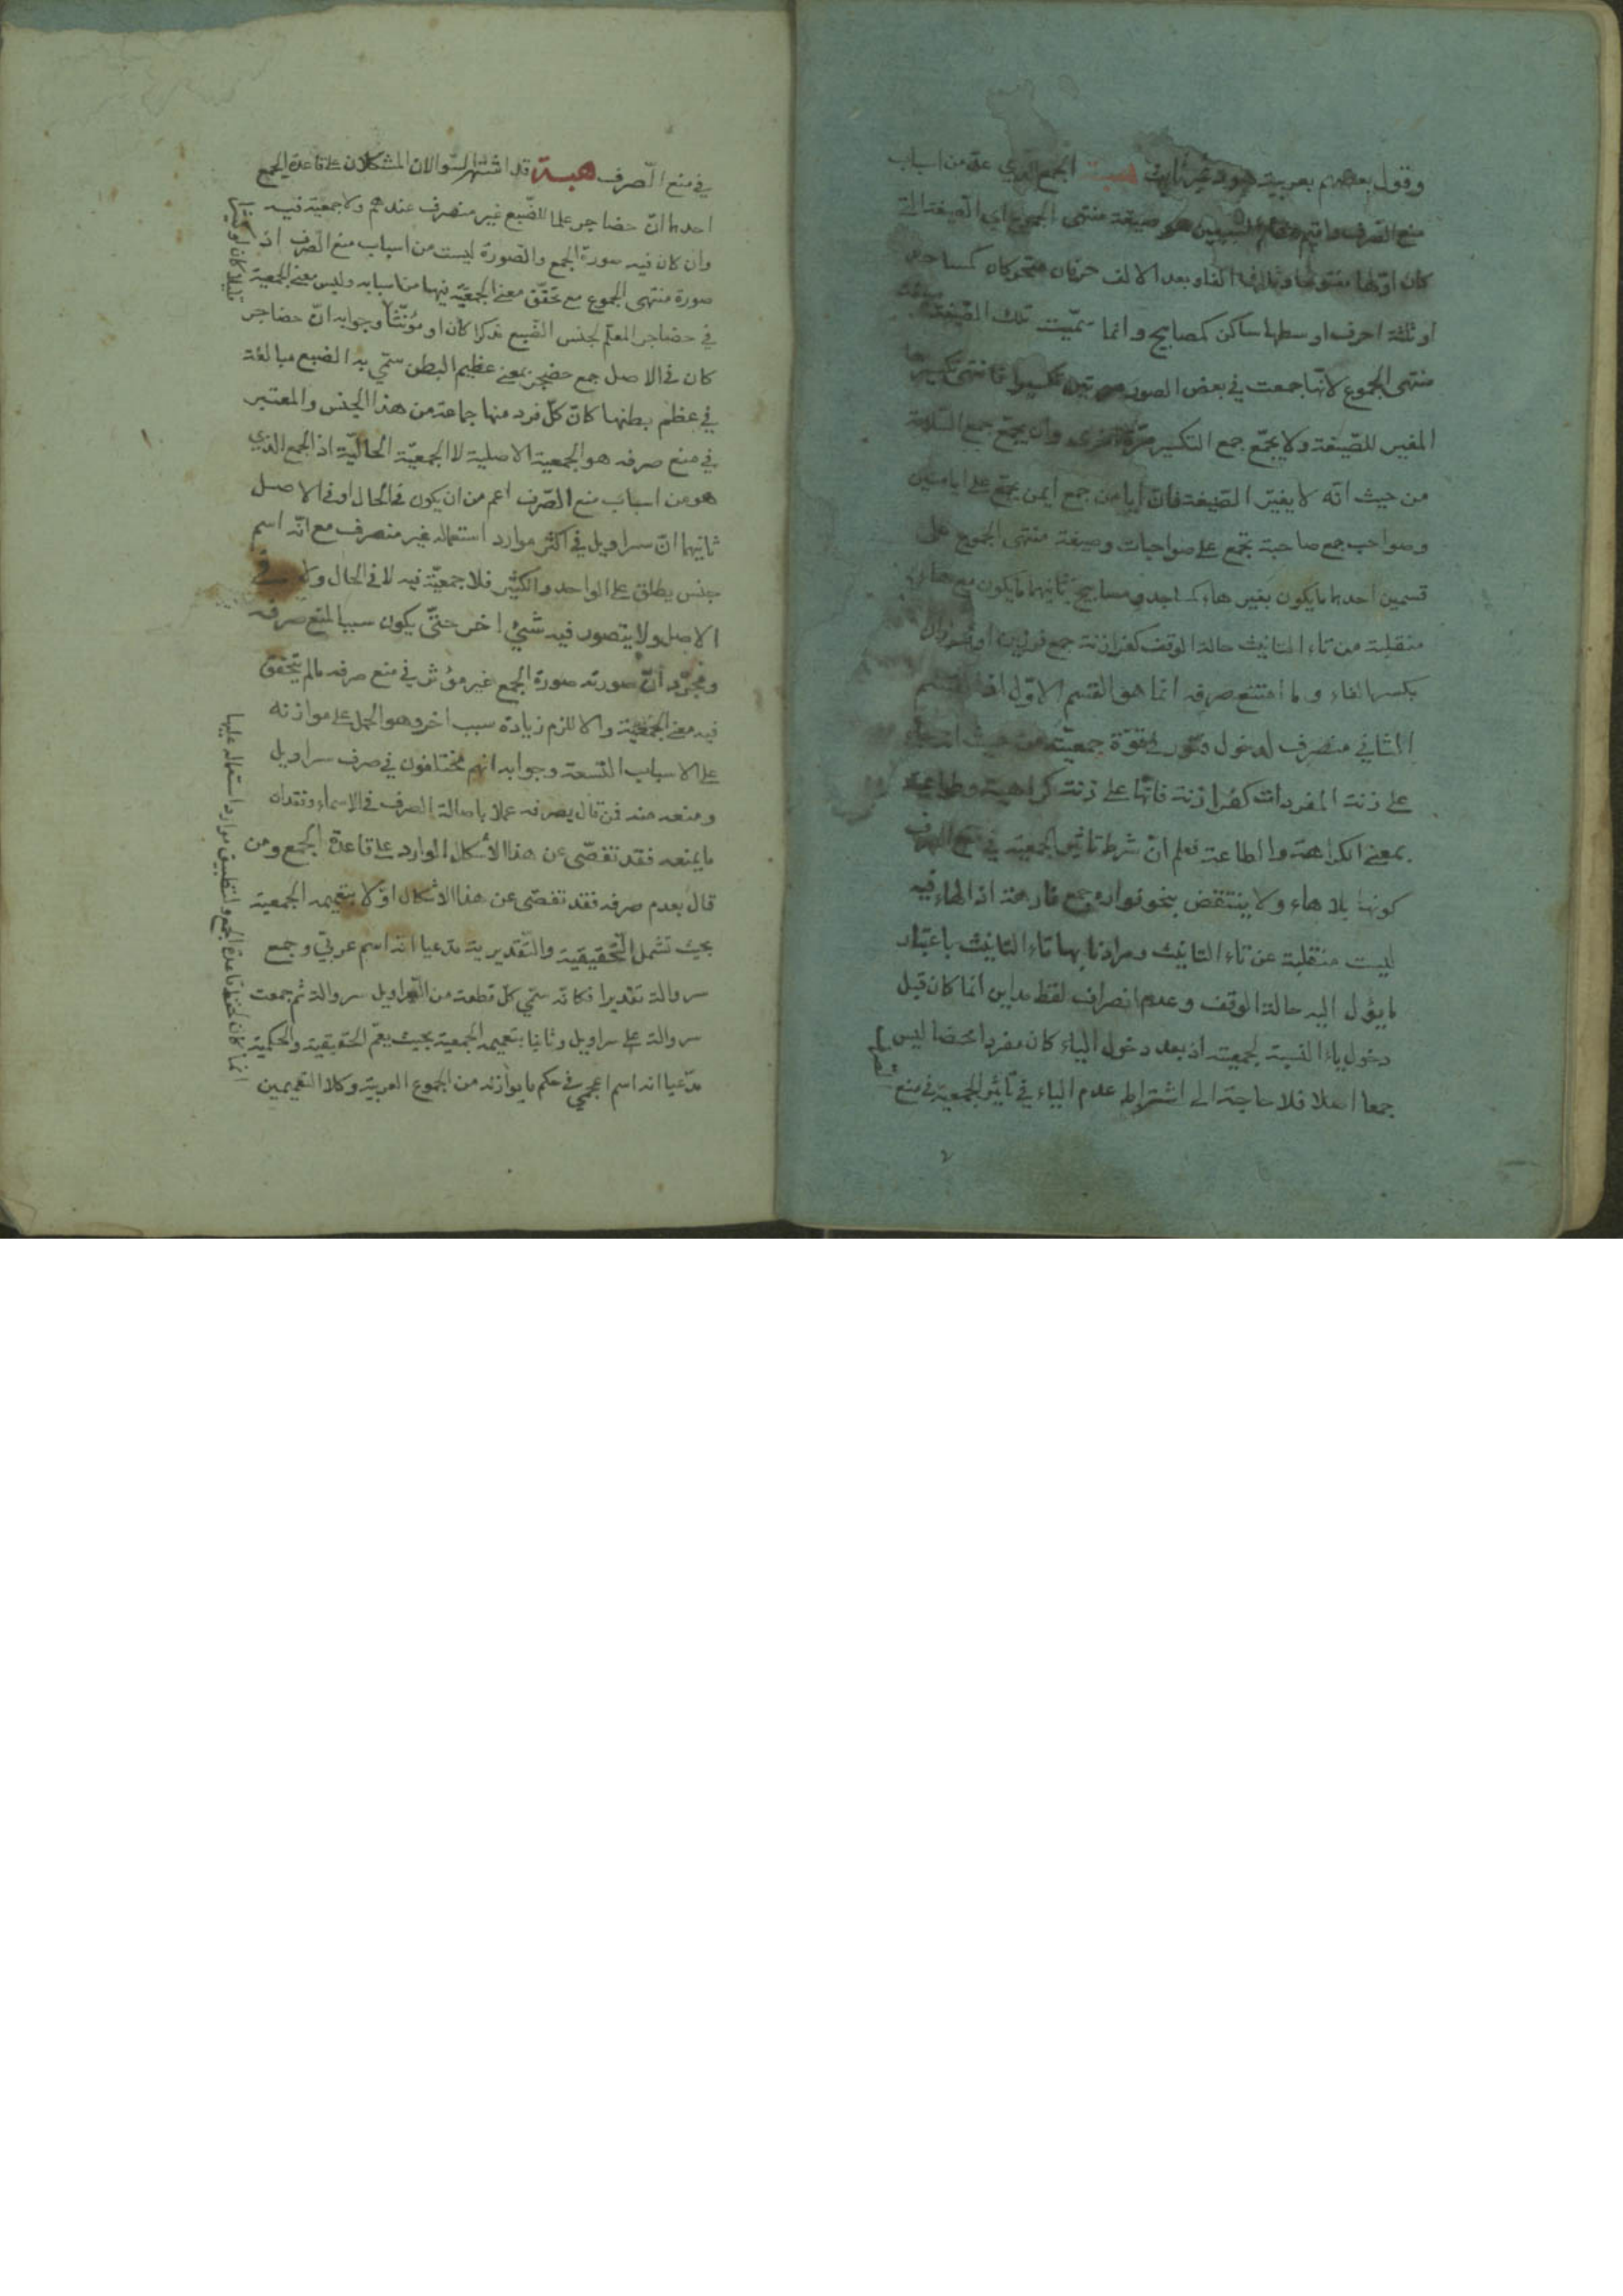 وقول بعضهم بعربية هود غير ثابت هبة الجمع الذي عد من اسباب
منع الصرف واقيم مقام السببين هو صيغة منتهى الجموع اي الصيغة التي
كان اولها مفتوحا وثالثها الفا وبعد الالف حرفان متحركان كمساجد
او ثلثة احرف اوسطها ساكن كمصابيح وانما سميت تلك الصيغة صيغة
منتهى الجموع لانها جمعت في بعض الصور مرتين تكسيرا فانتهى تكسيرها
المغير للصيغة ولا يجمع جمع التكسير مرة اخرى وان يجمع جمع السلامة
من حيث انه لا يغير الصيغة فان ايامن جمع ايمن يجمع على ايامنين
وصواحب جمع صاحبة يجمع على صواحبات وصيغة منتهى الجموع على
قسمين احدهما يكون بغير هاء كمساجد ومصابيح ثانيهما ما يكون مع هاء
منقلبة من تاء التانيث حالة الوقف كفرازنة جمع فرزين او
بكسر الفاء وما امتنع صرفه انما هو القسم الاول اذ القسم
الثاني منصرف لدخول فتور في قوة جمعيته من حيث انه جاء
على زنة المفردات كفرازنة فانها على زنة كراهية وطواعية
بمعنى الكراهة والطاعة فعلم ان شرط تاثير الجمعية في منع الصرف
كونها بلا هاء ولا ينتقض بنحو فواره جمع فارهة اذ الهاء فيه
ليست منقلبة عن تاء التانيث ومرادنا بها تاء التانيث باعتبار
ما يؤل اليه حالة الوقف وعدم انصراف لفظ مداين انما كان قبل
دخول ياء النسبة لجمعيته اذ بعد دخول الياء كان مفردا محضا ليس
جمعا اصلا فلا حاجة الى اشتراط عدم الياء في تاثير الجمعية في منع
في منع الصرف هبة قد اشتهر السؤالان المشكلان على قاعدة الجمع
احدهما ان حضاجر علما للضبع غير منصرف عندهم ولا جمعية فيه
وان كان فيه صورة الجمع والصورة ليست من اسباب منع الصرف اذ
صورة منتهى الجموع مع تحقق معنى الجمعية فيها من اسبابه وليس معنى الجمعية
في حضاجر المعلم لجنس الضبع مذكرا كان او مؤنثا وجوابه ان حضاجر
كان في الاصل جمع حضجر بمعنى عظيم البطن سمي به الضبع مبالغة
في عظم بطنها كان كل فرد منها جماعة من هذا الجنس والمعتبر
في منع صرفه هو الجمعية الاصلية لا الجمعية الحالية اذ الجمع الذي
هو من اسباب منع الصرف اعم من ان يكون في الحال او في الاصل
ثانيهما ان سراويل في اكثر موارد استعماله غير منصرف مع انه اسم
جنس يطلق على الواحد والكثير فلا جمعية فيه لا في الحال ولا في
الاصل ولا يتصور فيه شيئ اخر حتى يكون سببا لمنع صرفه
ومجرد ان صورته صورة الجمع غير مؤثر في منع صرفه مالم يتحقق
فيه معنى الجمعية والا للزم زيادة سبب اخر وهو الحمل على موازنه
على الاسباب التسعة وجوابه انهم مختلفون في صرف سراويل
ومنعه منه فمن قال يصرفه عملا باصالة الصرف في الاسماء وفقدان
ما يمنعه فقد تفصى عن هذا الاشكال الوارد على قاعدة الجمع ومن
قال بعدم صرفه فقد تفصى عن هذا الاشكال اولا بتعميمه الجمعية
بحيث تشمل التحقيقية والتقديرية مدعيا انه اسم عربي وجمع
سروالة تقديرا فكانه سمي كل قطعة من السراويل سروالة ثم جمعت
سروالة على سراويل وثانيا بتعميمه الجمعية بحيث يعم الحقيقية والحكمية
مدعيا انه اسم اعجمي في حكم ما يوازنه من الجموع العربية وكلا التعميمين
انما كان لحفظ قاعدة الجمع ولتطبيق موارد استعماله عليها